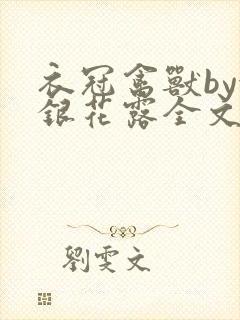 衣冠禽獸by
銀花露全文
劉雯文